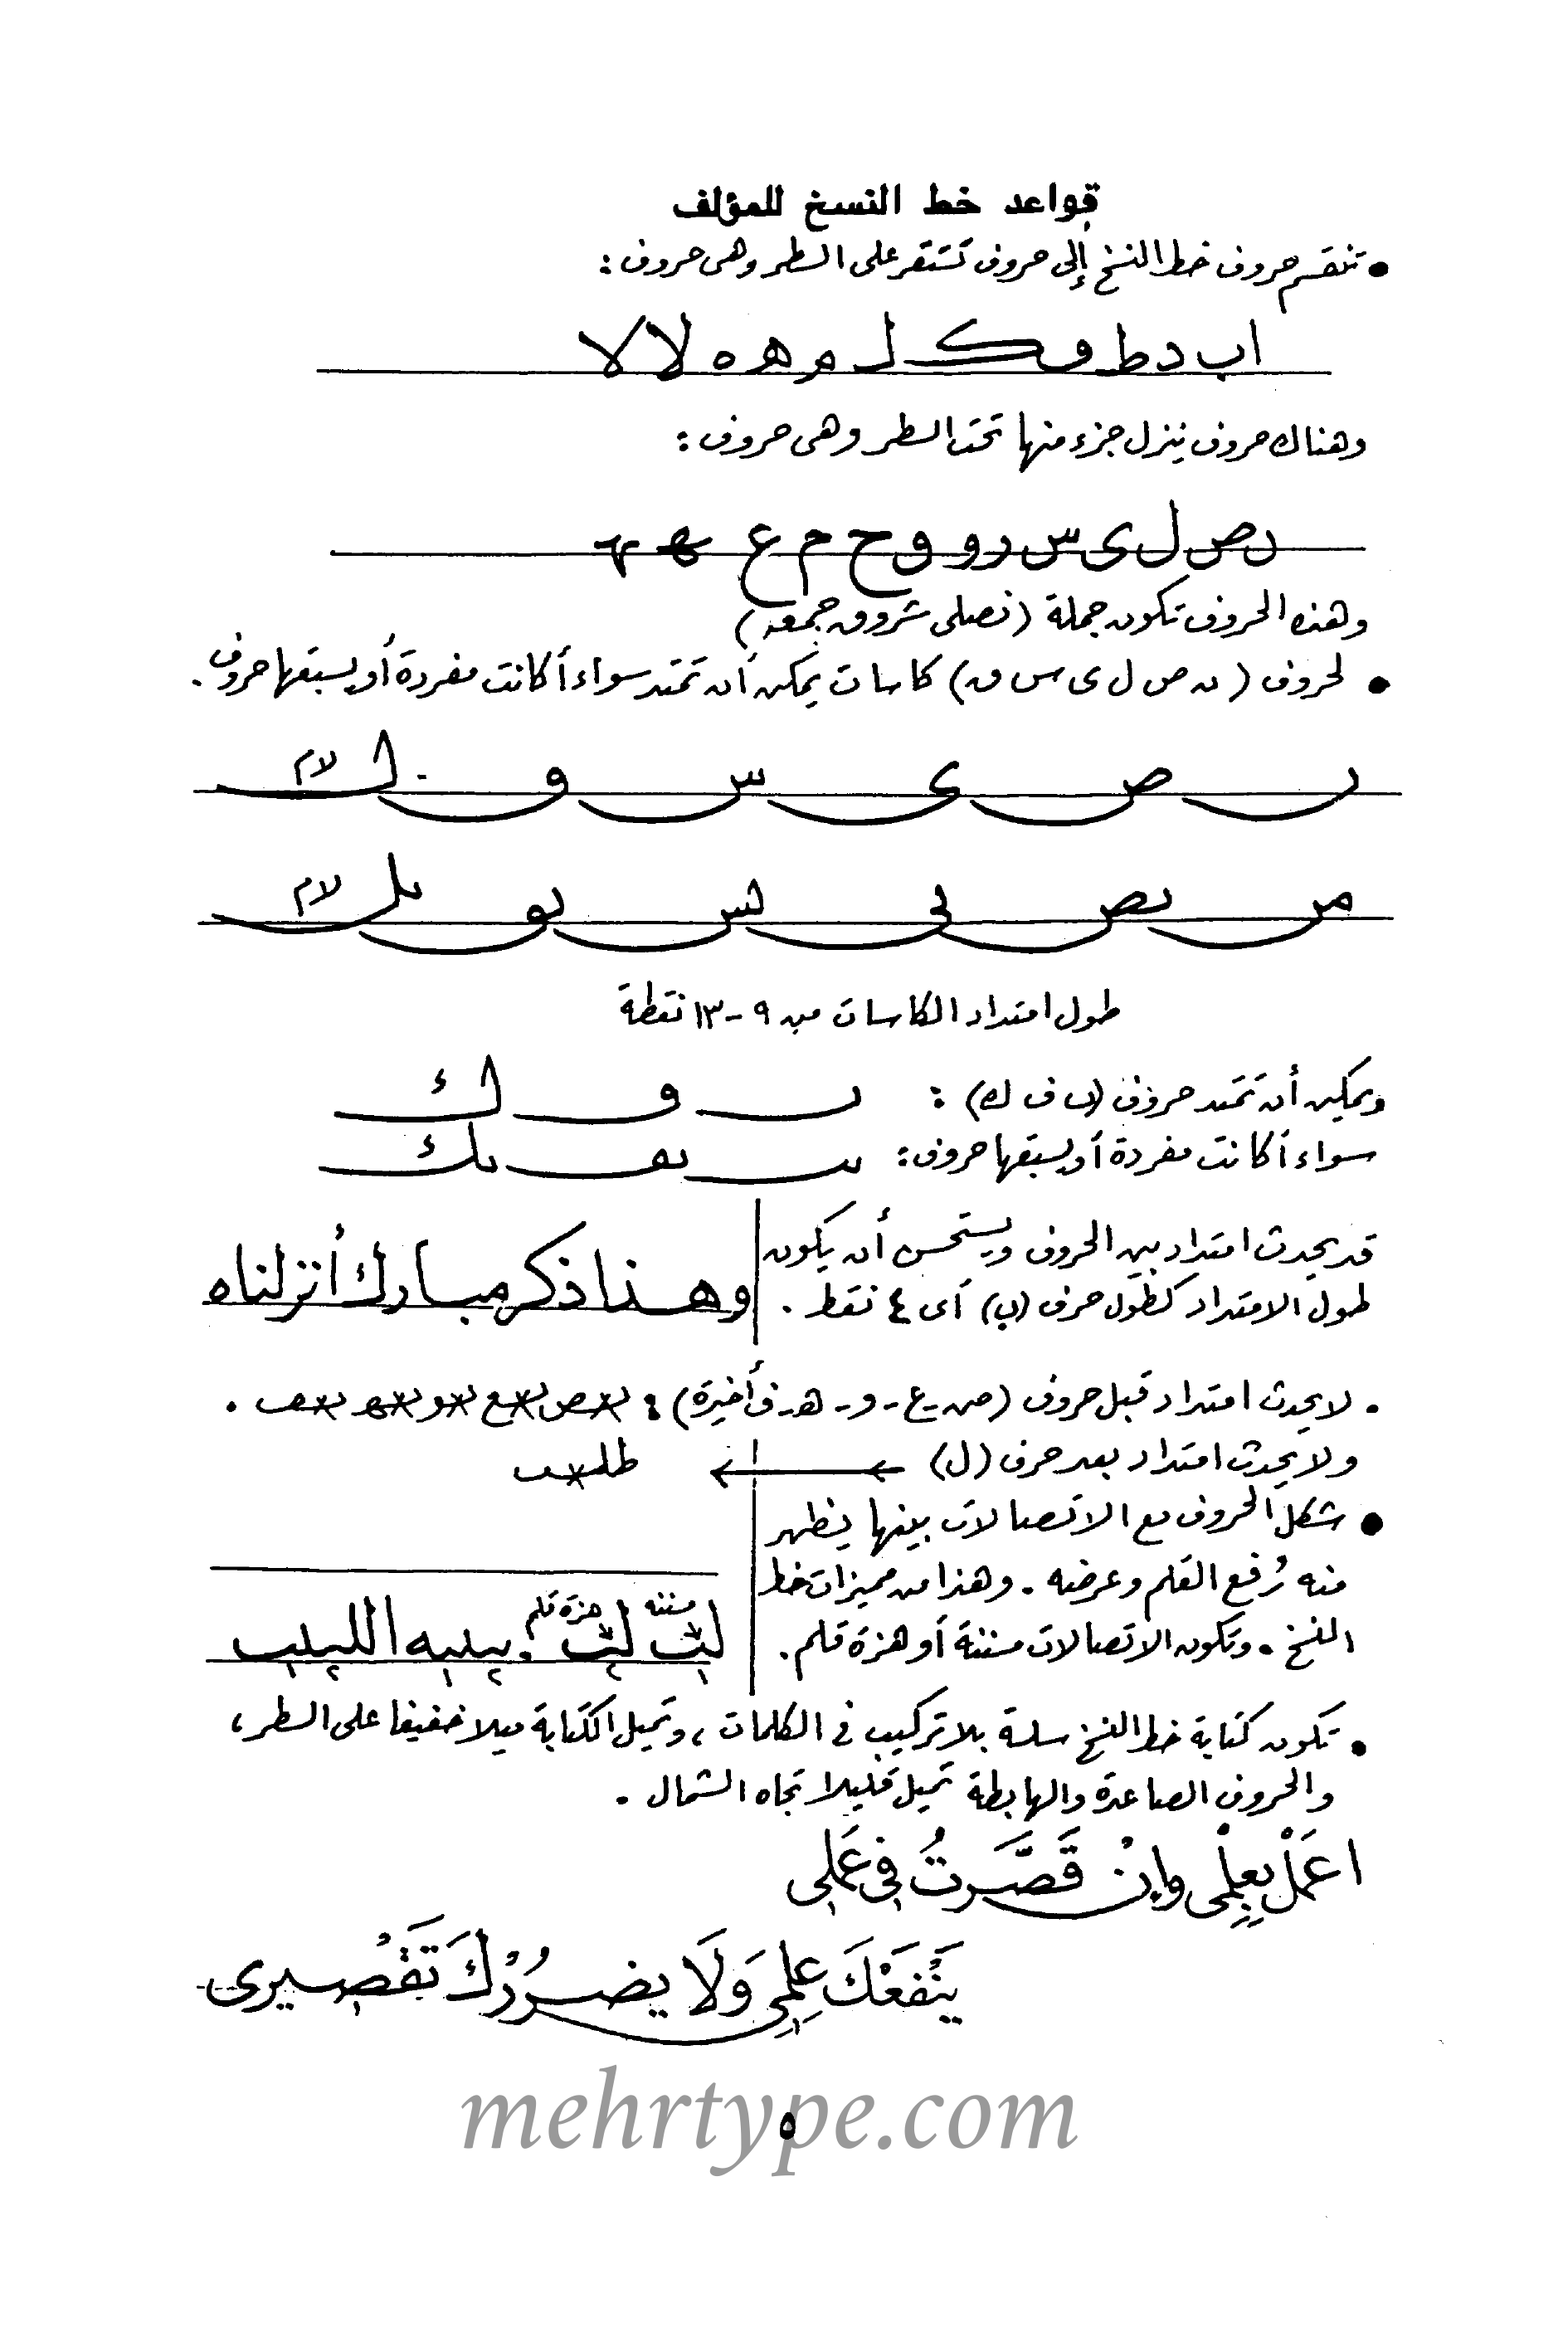 قواعد خط النسخ للمؤلف
• تنقسم حروف خط النسخ إلى حروف تستقر على السطر وهى حروف :
ا ب د ط ف ك ل م ه ه لا لا
وهناك حروف ينزل جزء منها تحت السطر وهى حروف :
ن ص ل ى س ر و ق ح م ع ه ه
وهذه الحروف تكون جملة (نصلى شروق جمعه)
• لحروف (ن ص ل ى س ق) كاسات يمكن أن تمتد سواء أكانت مفردة أو يسبقها حروف .
ن ص ى س ق . ل لام
من بص لى لس بو بل لام
طول امتداد الكاسات من ٩ - ١٣ نقطة
ويمكن أن تمتد حروف (ب ف ك) : ب ف ك
سواء أكانت مفردة أو يسبقها حروف :
قد يحدث امتداد بين الحروف ويستحسن أن يكون
طول الامتداد كطول حرف (ب) أى ٤ نقط .
وهذا ذكر مبارك أنزلناه
. لا يحدث امتداد قبل حروف (ص - ع - و - هـ - ف أخيرة) :
ولا يحدث امتداد بعد حرف (ل) طلب
• شكل الحروف مع الاتصالات بينها يظهر
منه رُفع القلم وعرضه . وهذا من مميزات خط
النسخ . وتكون الاتصالات مسننة أو هزة قلم .
مسننه هزة قلم
. تكون كتابة خط النسخ سلسة بلا تركيب فى الكلمات ، وتميل الكتابة ميلا خفيفا على السطر ،
والحروف الصاعدة والهابطة تميل قليلا تجاه الشمال .
اعمَلْ بِعِلْمِى وإنْ قَصَّرتُ فِى عَمَلِى
يَنْفَعْكَ عِلمِى وَلَا يضرُرْكَ تَقْصِيرى
mehrtype.com
٥